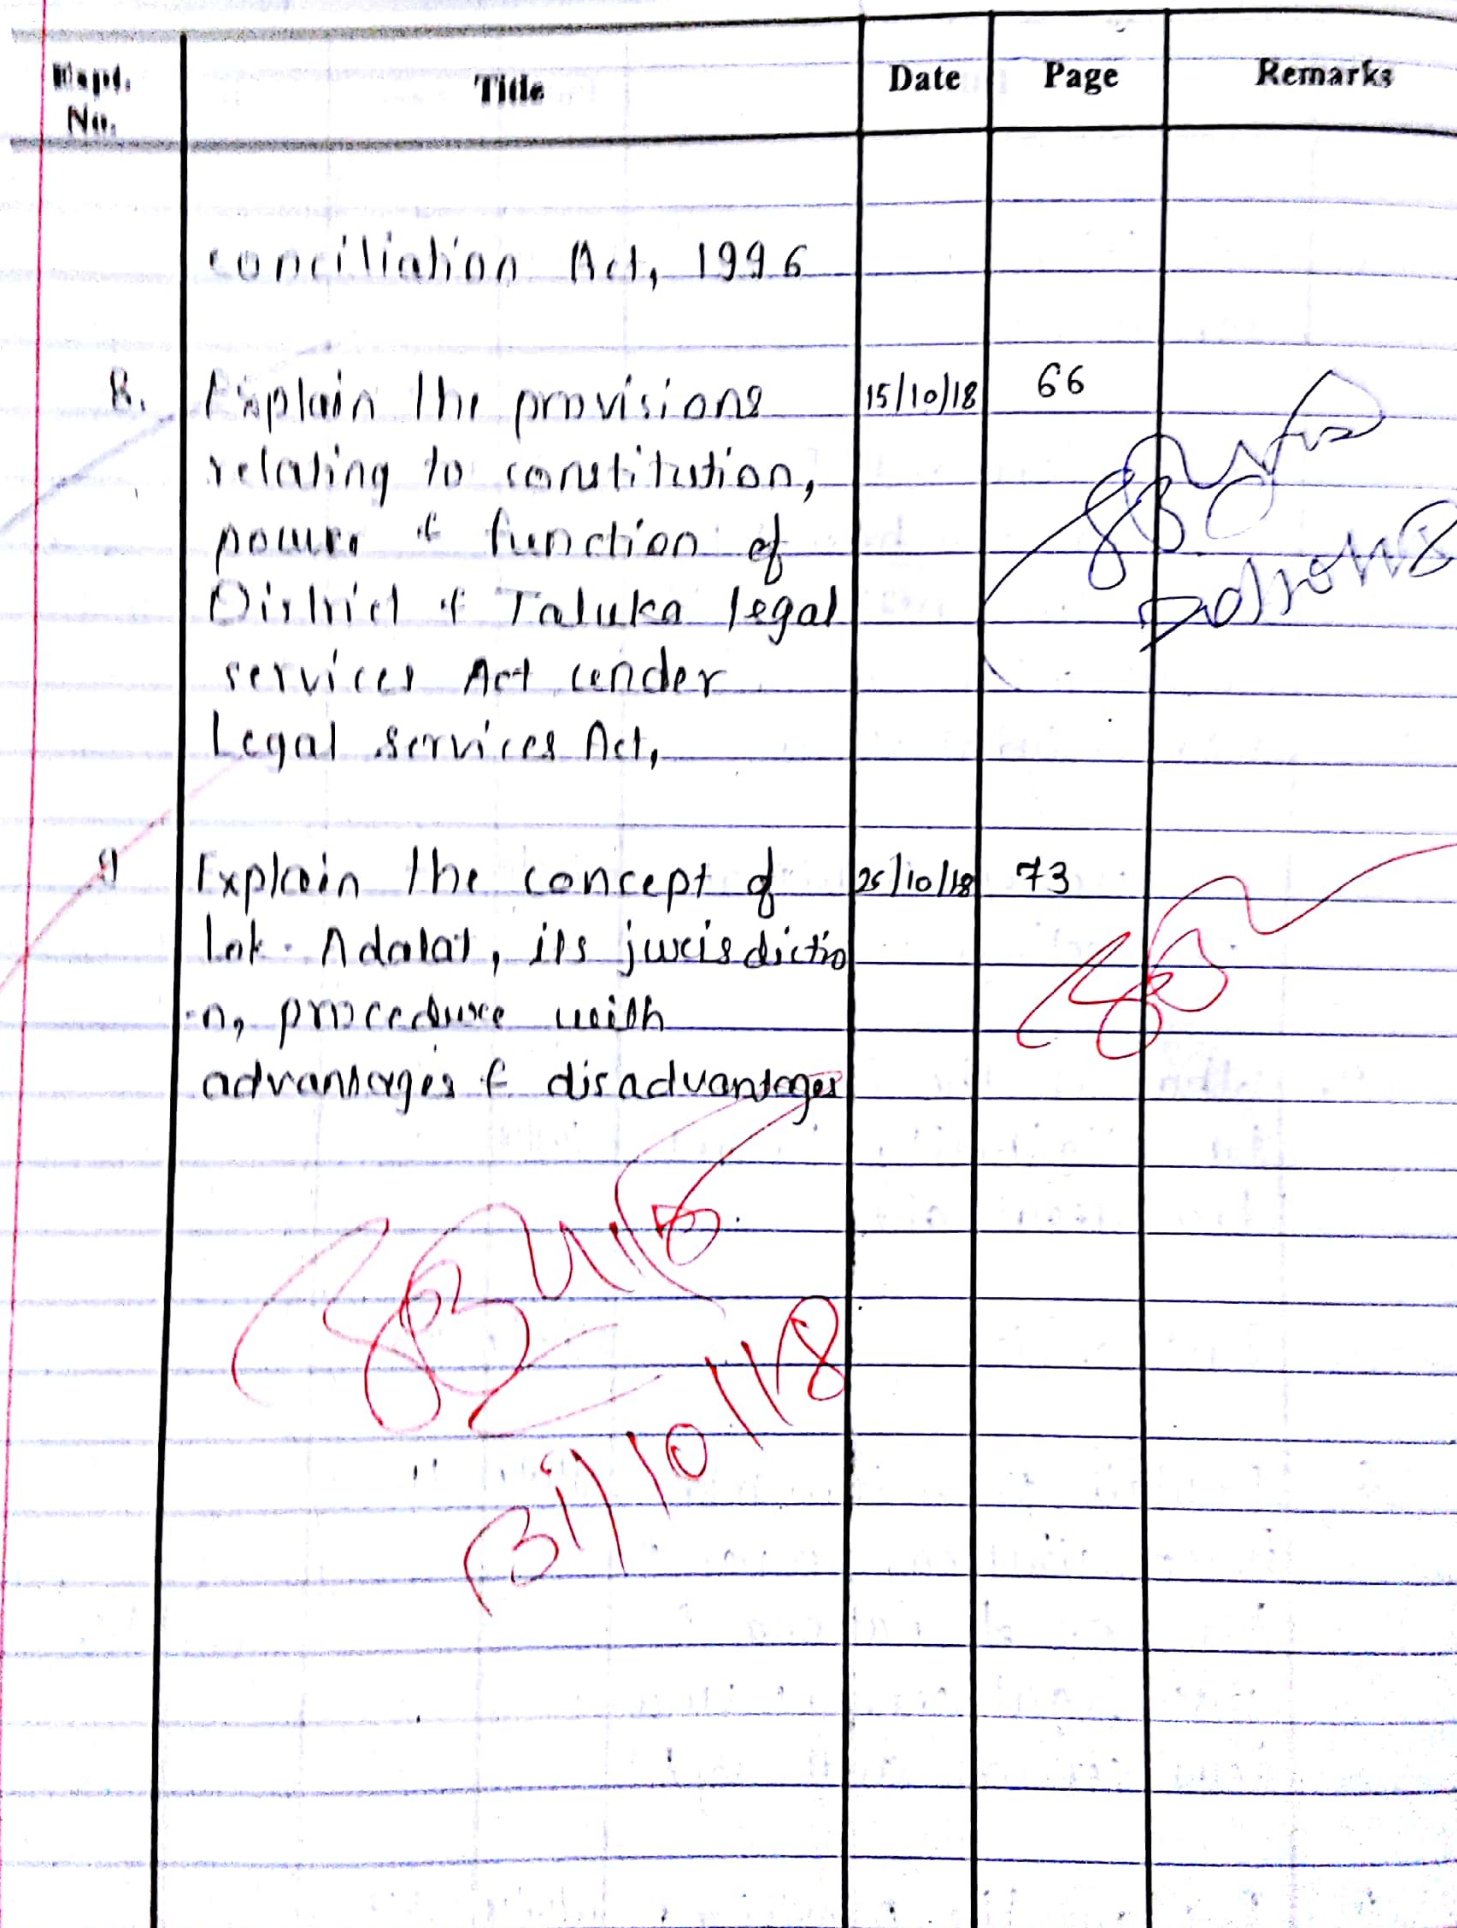 Expt. No. Title Date Page Remarks
conciliation Act, 1996
8. Explain the provisions 15/10/18 66
relating to constitution,
power & function of
District & Taluka legal
services Act under
Legal services Act,
9 Explain the concept of 25/10/18 73
Lok. Adalat, its jurisdictio
-n, procedure with
advantages & disadvantages
31/10/18